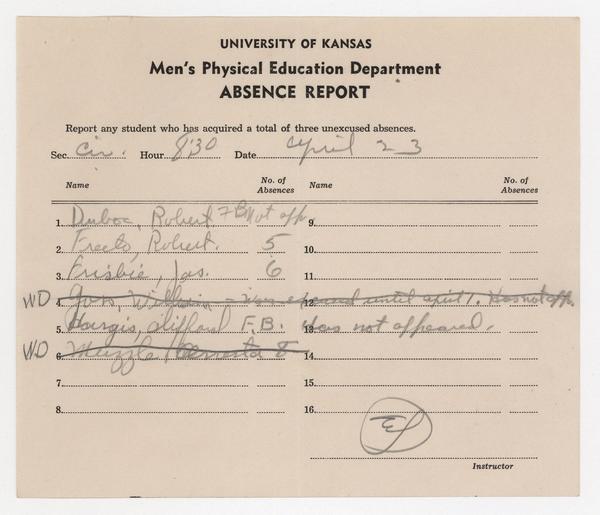 UNIVERSITY OF KANSAS
Men's Physical Education Department
ABSENCE REPORT
Report any student who has acquired a total of three unexcused absences.
Sec. Cir. Hour 8:30 Date April 23
Name No. of Absences Name No. of Absences
1. Duboc, Robert FB Not app. 9.
2. Freeto, Robert. 5 10.
3. Frisbie, Jas. 6 11.
WD 4. William - Was excused until April 1. Has not app. 12.
5. Hargis, Clifford F.B. Has not appeared. 13.
WD 6. 8 14.
7. 15.
8. 16.
Instructor